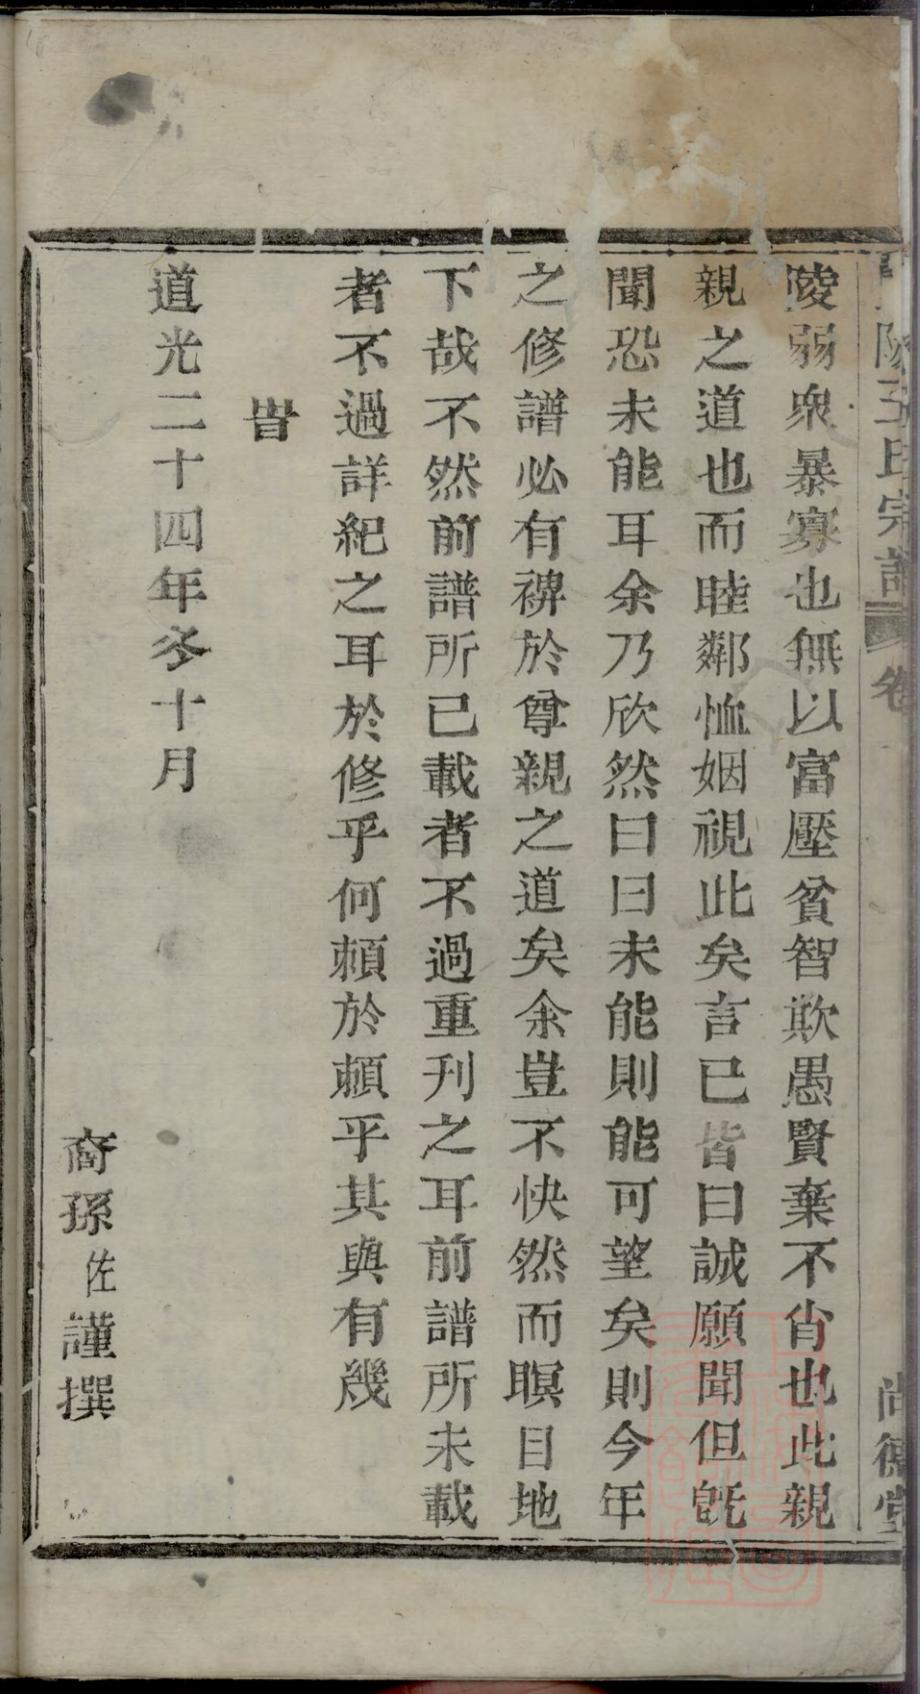 氏宗譜 卷 尚德堂
陵弱衆暴寡也無以富壓貧智欺愚賢棄不肖也此親
親之道也而睦鄰恤姻視此矣言已皆曰誠願聞但既
聞恐未能耳余乃欣然曰曰未能則能可望矣則今年
之修譜必有裨於尊親之道矣余豈不快然而瞑目地
下哉不然前譜所已載者不過重刊之耳前譜所未載
者不過詳紀之耳於修乎何賴於賴乎其與有幾
旹
道光二十四年冬十月
裔孫佐謹撰